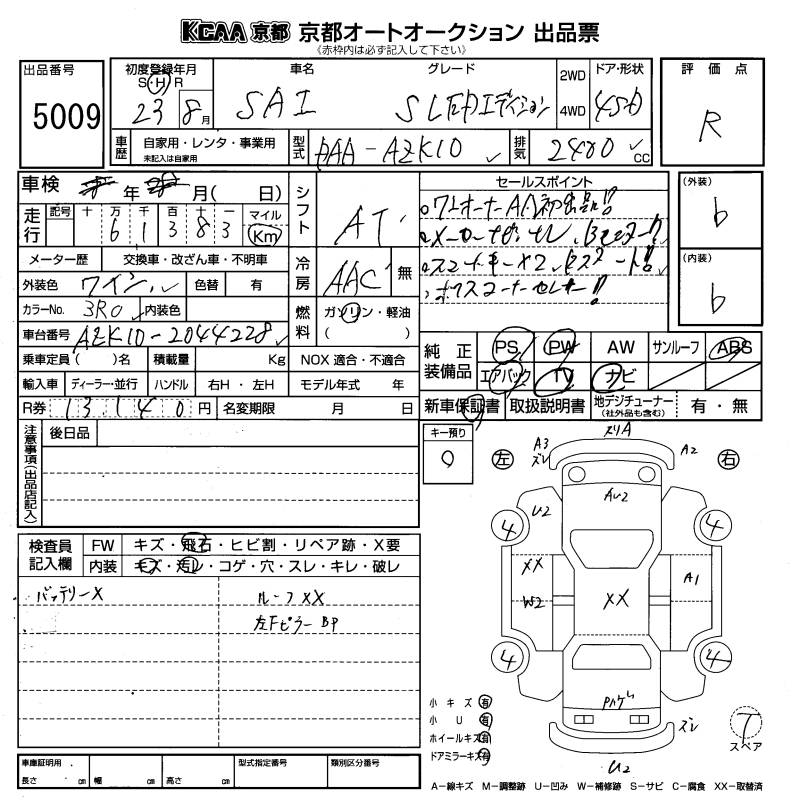 KCAA 京都 京都オートオークション 出品票
《赤枠内は必ず記入して下さい》
出品番号
5009
初度登録年月
S・H・R
23 8月
車名
SAI
グレード
2WD
4WD
ドア・形状
4SD
評価点
R
車歴
自家用・レンタ・事業用
未記入は自家用
型式
DAA-AZK10
排気
2400 CC
車検
年 月( 日)
シフト
AT
セールスポイント
(外装)
b
走行
記号 十 万 千 百 十 一 マイル
6 1 3 8 3 Km
メーター歴 交換車・改ざん車・不明車
外装色 ワイン 色替 有
冷房
AAC 無
(内装)
b
カラーNo. 3R0 内装色
燃料
ガソリン・軽油
( )
車台番号 AZK10-2044228
純正装備品
PS PW AW サンルーフ ABS
エアバック TV ナビ
乗車定員( )名 積載量 Kg NOX 適合・不適合
輸入車 ディーラー・並行 ハンドル 右H・左H モデル年式 年
R券 13,140 円 名変期限 月 日
新車保証書 取扱説明書 地デジチューナー(社外品も含む) 有・無
注意事項(出品店記入)
後日品
キー預り
0
左
右
ズリA
A3
ズレ
A2
AU2
U2
4
4
XX
W2
XX
A1
4
4
ズレ
U2
検査員記入欄
FW キズ・飛石・ヒビ割・リペア跡・X要
内装 キズ・汚レ・コゲ・穴・スレ・キレ・破レ
バッテリーX
ルーフXX
左FピラーBP
小キズ 有
小U 有
ホイールキズ 有
ドアミラーキズ 有
T
スペア
車庫証明用
長さ cm 幅 cm 高さ cm
型式指定番号
類別区分番号
A-線キズ M-調整跡 U-凹み W-補修跡 S-サビ C-腐食 XX-取替済